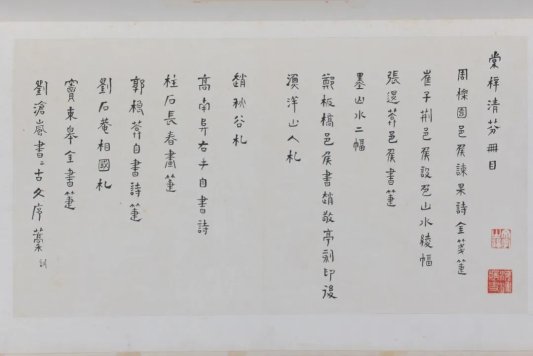 棠梓清芬冊目
周櫟園邑侯諫果詩金箋箑
崔子荆邑侯設色山水綾幅
張還葊邑侯書箑
墨山水二幅
鄭板橋邑侯書趙敬亭刻印後
漁洋山人札
趙秋谷札
高南阜右手自書詩
柱石長春畫箑
郭穆葊自書詩箑
劉石菴相國札
竇東皋金書箑
劉滄嵐書古文序藳